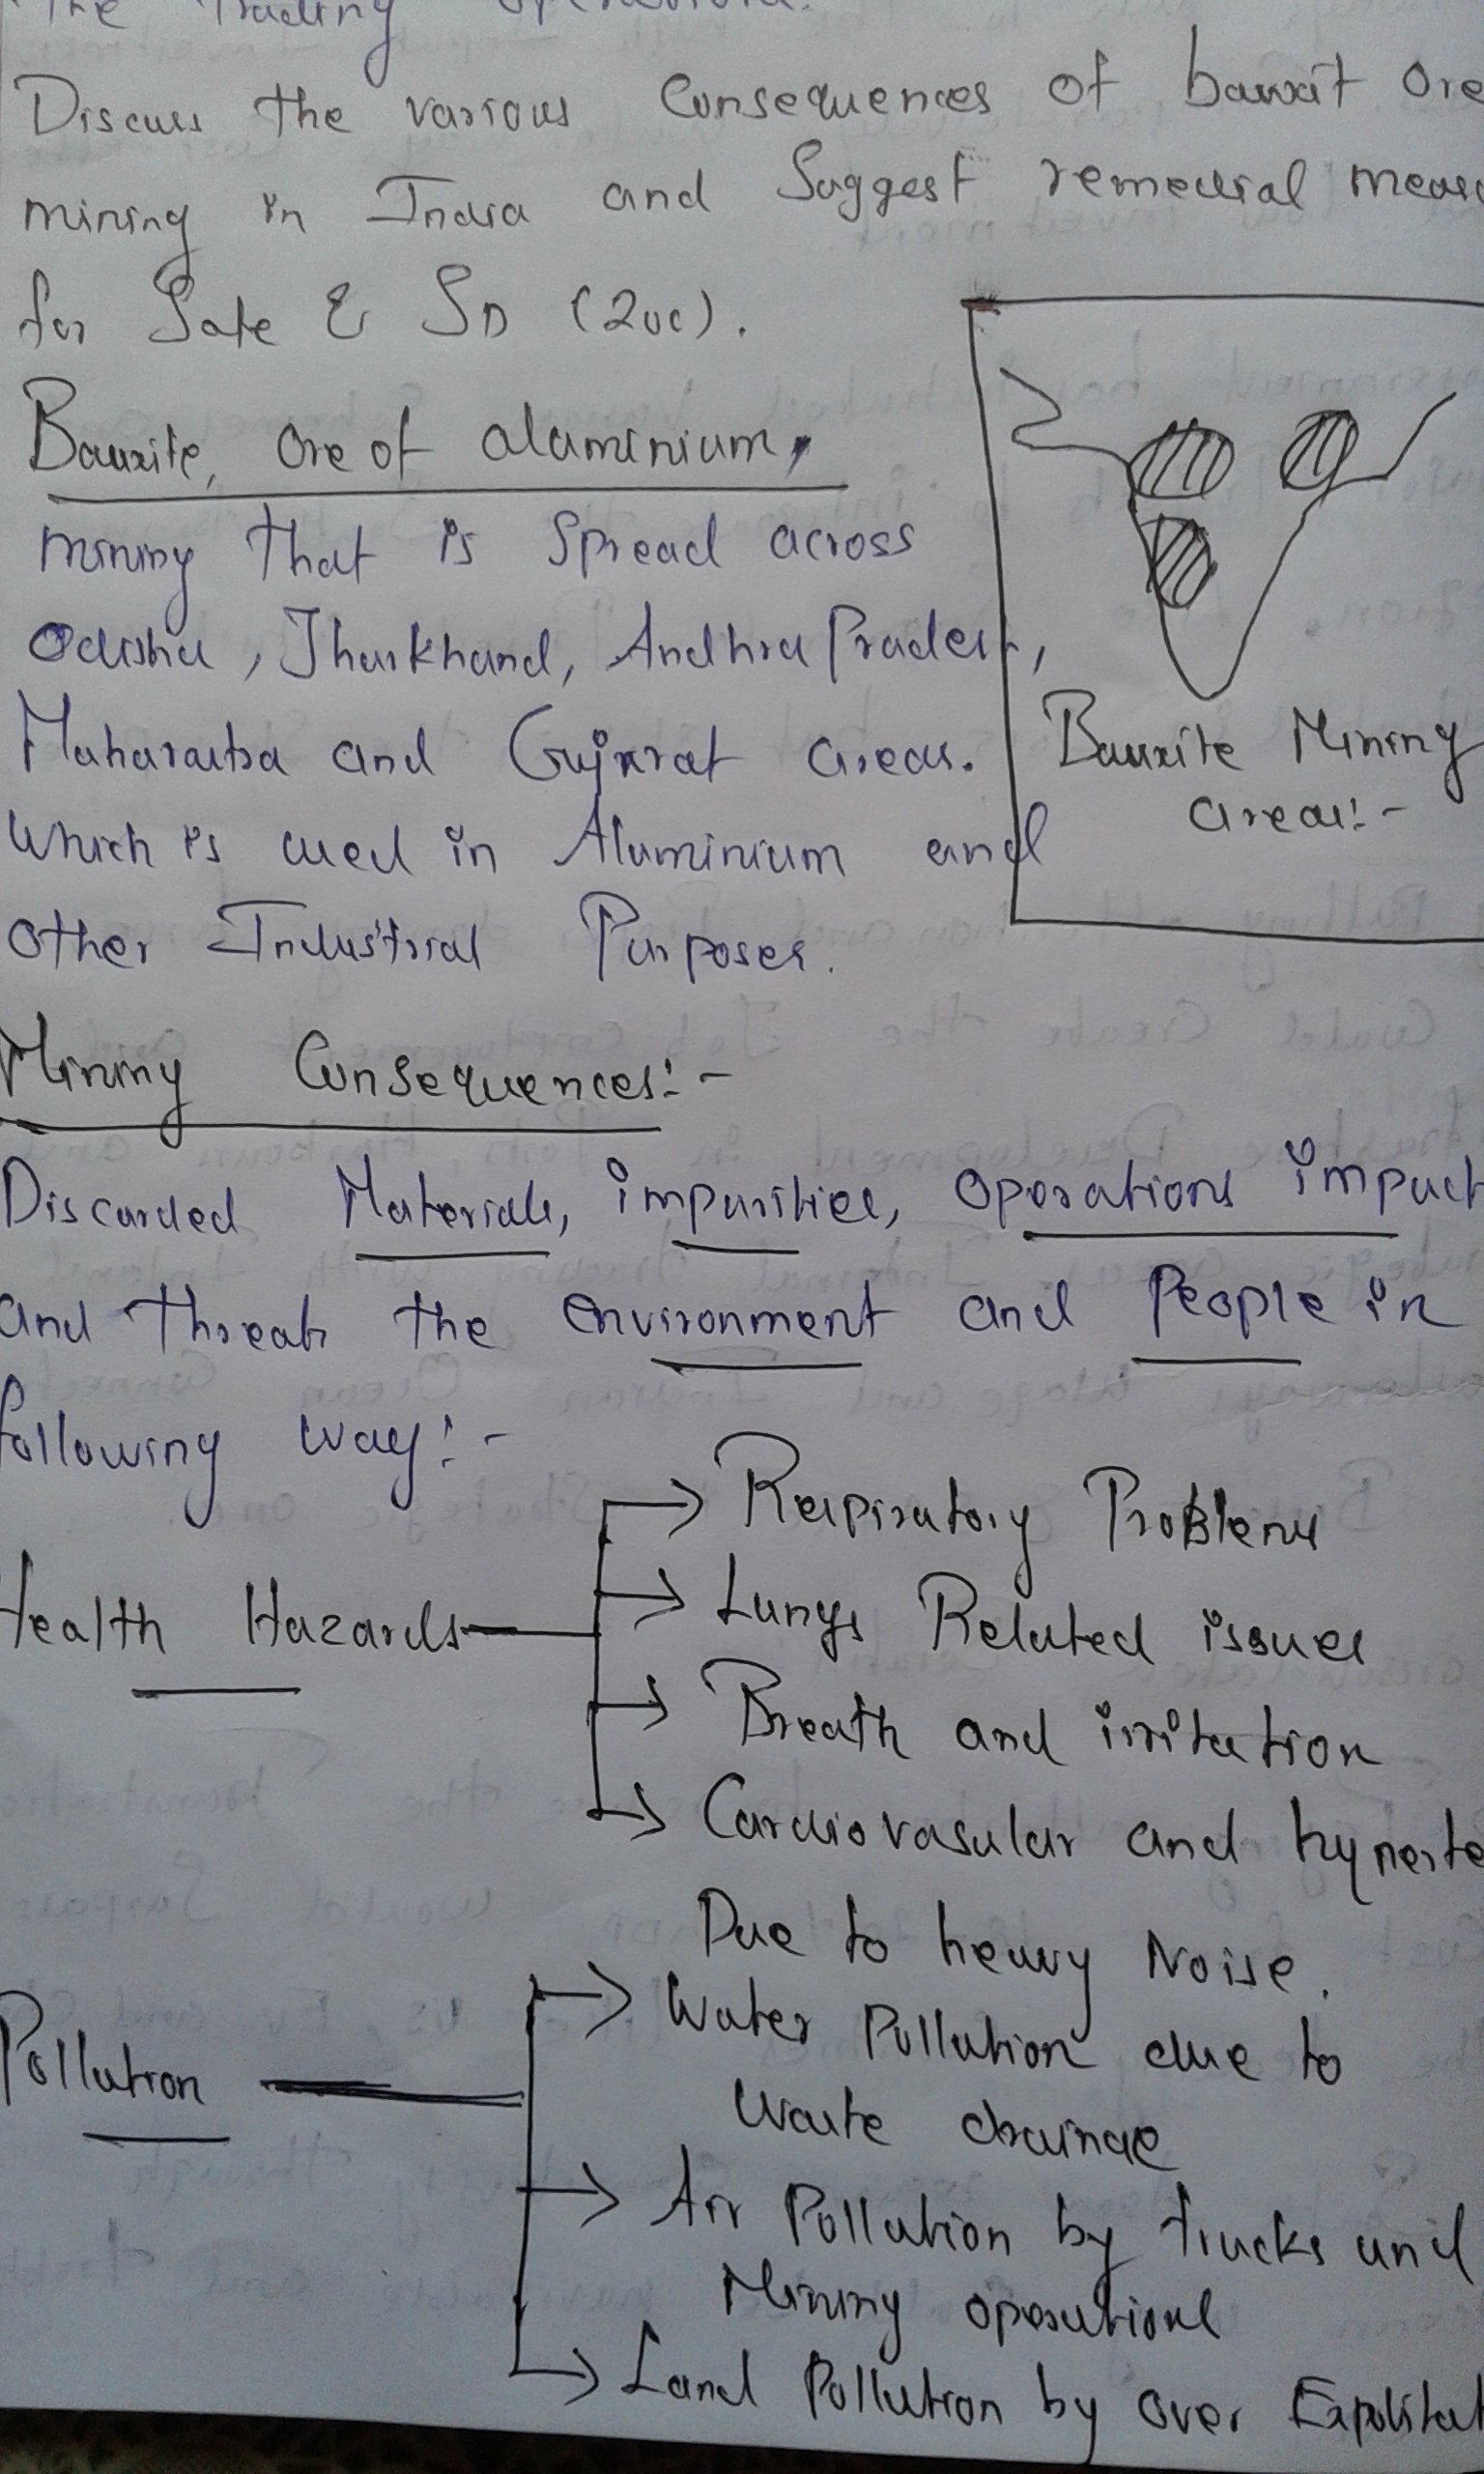 The Trading operations.
Discuss the various Consequences of bauxit Ore
mining in India and Suggest remedial meas
for Safe & SD (200).
Bauxite, Ore of aluminium,
mining that is Spread across
Odisha, Jharkhand, Andhra Pradesh,
Maharastra and Gujarat areas.
Which is used in Aluminium and
Other Industrial Purposes.
Bauxite Mining
areas:-
Mining Consequences:-
Discarded Materials, impurities, operations impact
and threats the environment and People in
following way:-
Health Hazards
Respiratory Problems
Lungs Related issues
Breath and irritation
Cardiovasular and hyperte
Due to heavy Noise.
Pollution
Water Pollution due to
Waste drainae
Air Pollution by trucks and
Mining operations
Land Pollution by over Expolitat